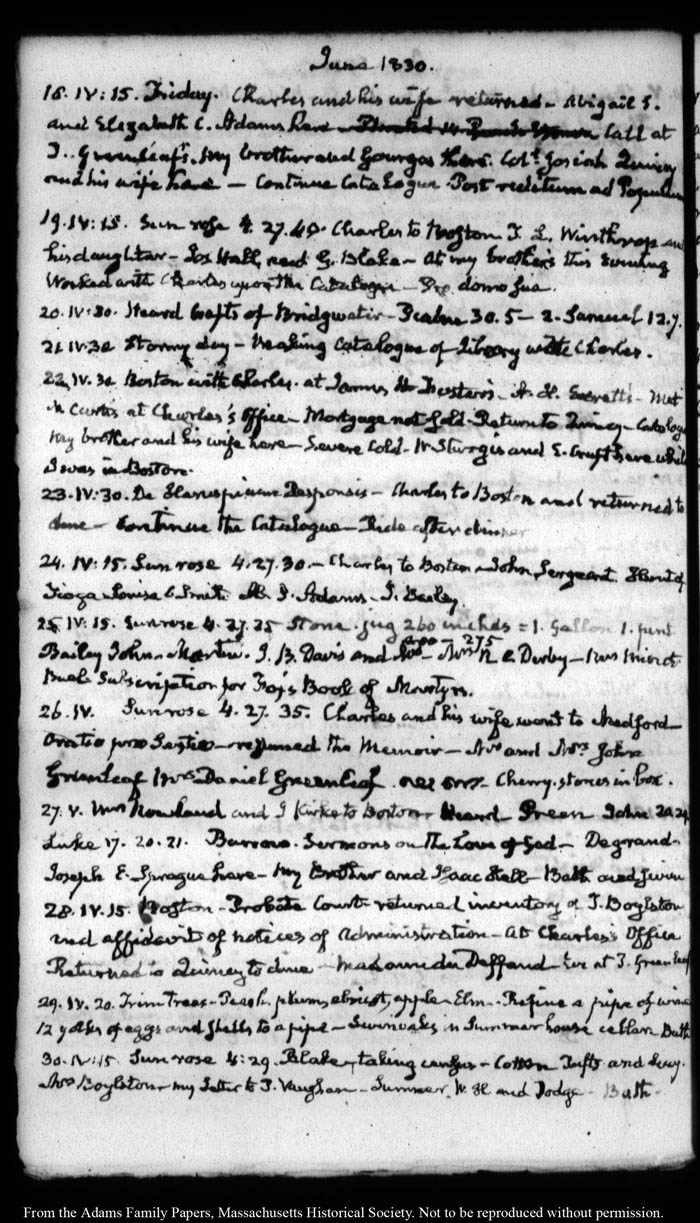 June 1830.
18. IV: 15. Friday. Charles and his wife returned - Abigail S.
and Elizabeth C. Adams here - Call at
T. Greenleaf's. My brother and Gourgas there. Coll. Josiah Quincy
and his wife here — Continue Catalogue Post reditum ad Populum
19. IV: 15. Sun rose 4. 27. 40. Charles to Boston T. L. Winthrop and
his daughter - Jos Hall, and G. Blake - At my brother's this Evening
Worked with Charles upon the Catalogue - Pro domo sua.
20. IV: 30. Heard of Bridgwater - Psalm 30. 5 - 2. Samuel 12. 7.
21. IV. 30 Stormy day - Making Catalogue of Library with Charles.
22. IV. 30 Boston with Charles. at James H. Foster's - A. H. Everett's - Met
Curtis at Charles's Office - Mortgage not Return to Quincy - Catalogue
My brother and his wife here - Severe Cold. W Sturgis and here while
I was in Boston.
23. IV: 30. De Haruspicum Responsis - Charles to Boston and returned to
dine - Continue the Catalogue - Ride after dinner
24. IV: 15. Sun rose 4. 27. 30. - Charles to Boston - John Sergeant. of
Tioga Louisa C Smith I. Adams - J. Bailey
25. IV: 15. Sunrose 4. 27. 35 Stone jug 260 inches = 1. Gallon 1. pint
apo - 275
Bailey John. Martin. J. B. Davis and - Mrs N e Derby - Miss
Subscription for Fox's Book of Martyrs.
26. IV. Sunrose 4. 27. 35. Charles and his wife went to Medford -
Oratio pro Sextio - resumed the Memoir - Mr and Mrs. John
Greenleaf Mrs Daniel Greenleaf - Cherry stones in box.
27. V. Mrs Nowland and J Kirke to Boston Heard John 20. 24
Luke 17. 20. 21. Burrows Sermons on the Love of God - Degrand -
Joseph E. Sprague here - My Brother and Isaac Hull - Bath and swim
28. IV. 15 Boston - Probate Court - returned inventory of T. Boylston
and affidavit of notices of Administration - At Charles's Office
Returned to Quincy to dine - Madame du Deffand - Eve at T. Greenleaf
29. IV. 20. Trim Trees - Peach, plum, apricot, apple - Elm - Refine a pipe of wine
12 yolks of eggs and shells to a pipe - in Summer house cellar Bath
30. IV: 15 Sun rose 4: 29. Blake, taking census - Cotton Tufts and Lucy.
Mrs Boylston - my Letter to J. Vaughan - Sumner, W. H. and Dodge - Bath -
From the Adams Family Papers, Massachusetts Historical Society. Not to be reproduced without permission.